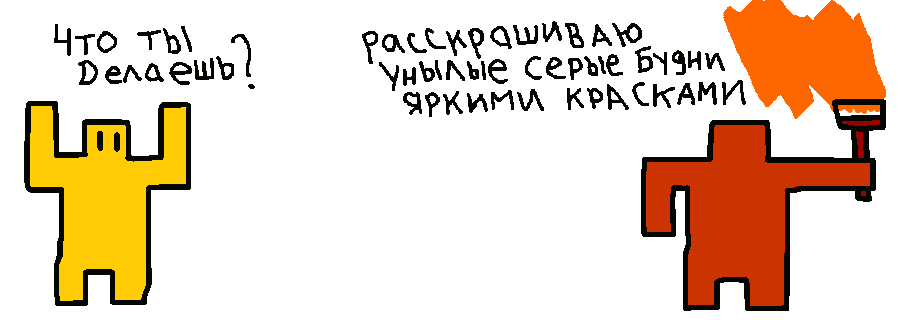 Что ты
делаешь?
Расскрашиваю
унылые серые будни
яркими красками